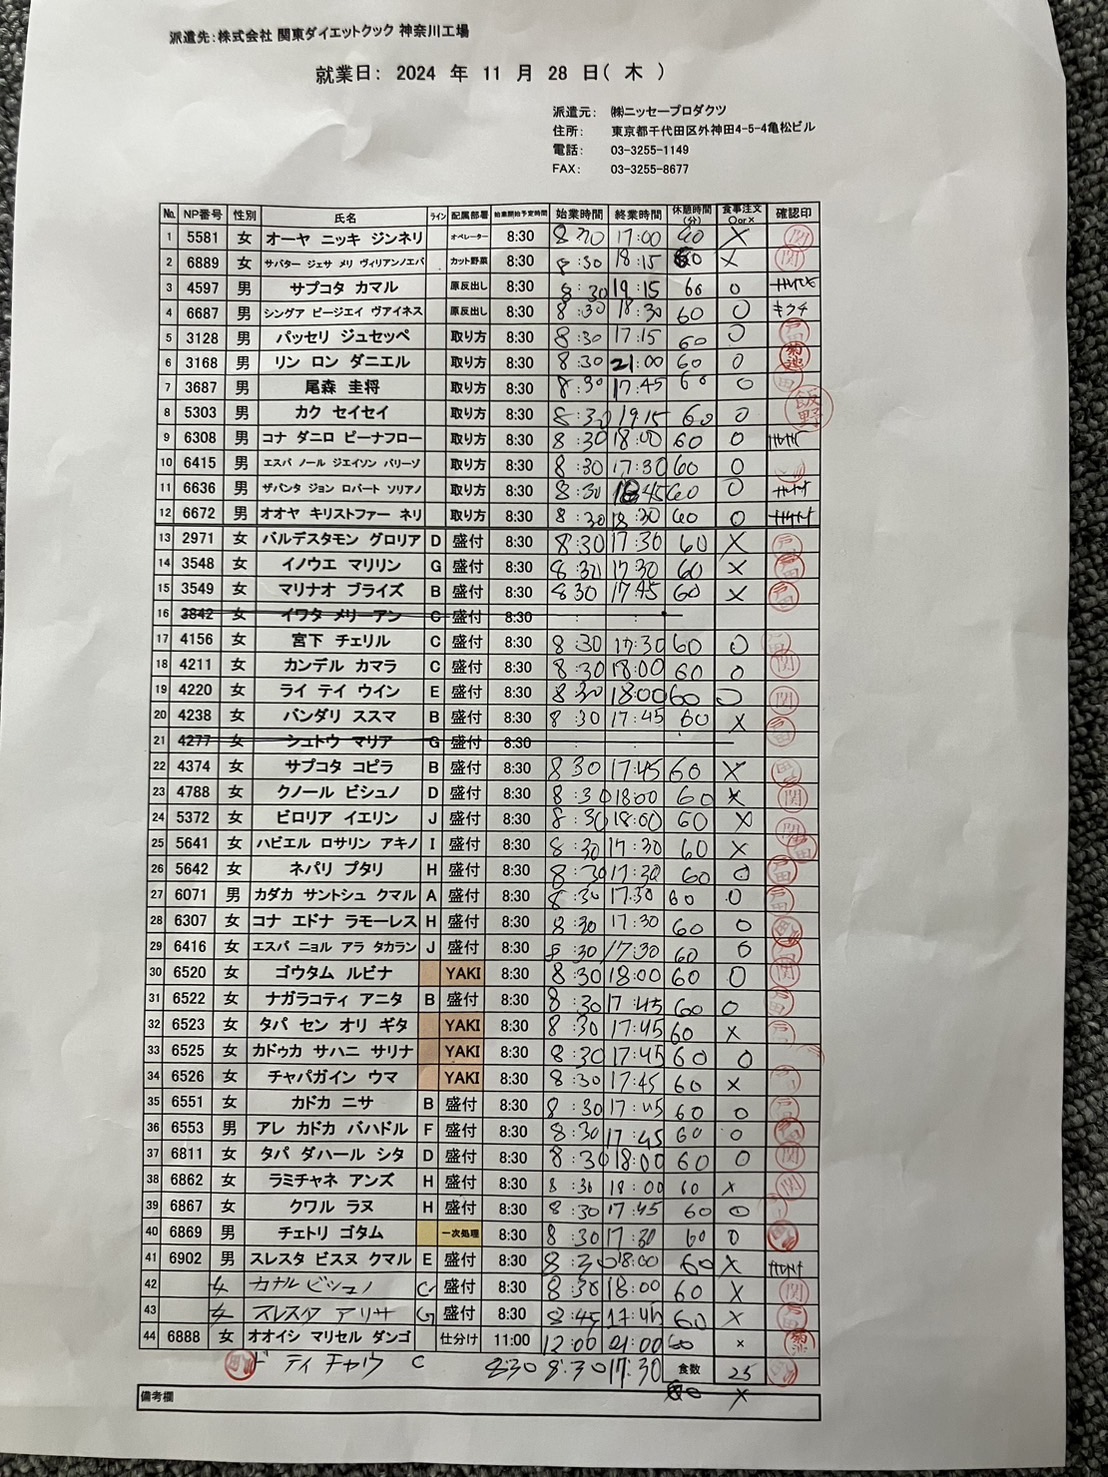 派遣先:株式会社 関東ダイエットクック 神奈川工場
就業日: 2024 年 11 月 28 日( 木 )
派遣元: ㈱ニッセープロダクツ
住所: 東京都千代田区外神田4-5-4亀松ビル
電話: 03-3255-1149
FAX: 03-3255-8677
No. NP番号 性別 氏名 ライン 配属部署 始業開始予定時間 始業時間 終業時間 休憩時間(分) 食事注文○or× 確認印
1 5581 女 オーヤ ニッキ ジンネリ オペレーター 8:30 17:00 × 関
2 6889 女 サバター ジェサ メリ ヴィリアンノエバ カット野菜 8:30 8:30 18:15 60 × 関
3 4597 男 サプコタ カマル 原反出し 8:30 8:30 19:15 60 ○
4 6687 男 シングア ビージエイ ヴアイネス 原反出し 8:30 8:30 18:30 60 ○ キクチ
5 3128 男 パッセリ ジュセッペ 取り方 8:30 8:30 17:15 60 ○
6 3168 男 リン ロン ダニエル 取り方 8:30 8:30 21:00 60 ○ 菊池
7 3687 男 尾森 圭将 取り方 8:30 8:30 17:45 60 ○
8 5303 男 カク セイセイ 取り方 8:30 8:30 19:15 60 ○ 飯野
9 6308 男 コナ ダニロ ビーナフロー 取り方 8:30 8:30 18:00 60 ○
10 6415 男 エスパ ノール ジエイソン バリーソ 取り方 8:30 8:30 17:30 60 ○
11 6636 男 ザバンタ ジョン ロバート ソリアノ 取り方 8:30 8:30 60 ○
12 6672 男 オオヤ キリストファー ネリ 取り方 8:30 8:30 18:30 60 ○
13 2971 女 バルデスタモン グロリア D 盛付 8:30 8:30 17:30 60 ×
14 3548 女 イノウエ マリリン G 盛付 8:30 8:30 17:30 60 ×
15 3549 女 マリナオ ブライズ B 盛付 8:30 8:30 17:45 60 ×
16 3842 女 イワタ メリーアン C 盛付 8:30 : :
17 4156 女 宮下 チェリル C 盛付 8:30 8:30 17:30 60 ○
18 4211 女 カンデル カマラ C 盛付 8:30 8:30 18:00 60 ○ 関
19 4220 女 ライ テイ ウイン E 盛付 8:30 8:30 18:00 60 ○ 関
20 4238 女 バンダリ ススマ B 盛付 8:30 8:30 17:45 60 ×
21 4277 女 シュトウ マリア G 盛付 8:30 : :
22 4374 女 サプコタ コピラ B 盛付 8:30 8:30 17:45 60 ×
23 4788 女 クノール ビシュノ D 盛付 8:30 8:30 18:00 60 × 関
24 5372 女 ビロリア イエリン J 盛付 8:30 8:30 18:00 60 × 関
25 5641 女 ハビエル ロサリン アキノ I 盛付 8:30 8:30 17:30 60 ×
26 5642 女 ネパリ プタリ H 盛付 8:30 8:30 17:30 60 ○
27 6071 男 カダカ サントシュ クマル A 盛付 8:30 8:30 17:30 60 ○
28 6307 女 コナ エドナ ラモーレス H 盛付 8:30 8:30 17:30 60 ○
29 6416 女 エスパ ニョル アラ タカラン J 盛付 8:30 8:30 17:30 60 ○
30 6520 女 ゴウタム ルビナ YAKI 8:30 8:30 18:00 60 ○ 関
31 6522 女 ナガラコティ アニタ B 盛付 8:30 8:30 17:45 60 ○
32 6523 女 タパ セン オリ ギタ YAKI 8:30 8:30 17:45 60 ×
33 6525 女 カドゥカ サハニ サリナ YAKI 8:30 8:30 17:45 60 ○
34 6526 女 チャパガイン ウマ YAKI 8:30 8:30 17:45 60 ×
35 6551 女 カドカ ニサ B 盛付 8:30 8:30 17:45 60 ○
36 6553 男 アレ カドカ バハドル F 盛付 8:30 8:30 17:45 60 ○
37 6811 女 タパ ダハール シタ D 盛付 8:30 8:30 18:00 60 ○ 関
38 6862 女 ラミチャネ アンズ H 盛付 8:30 8:30 18:00 60 × 関
39 6867 女 クワル ラヌ H 盛付 8:30 8:30 17:45 60 ○
40 6869 男 チェトリ ゴタム 一次処理 8:30 8:30 17:30 60 ○
41 6902 男 スレスタ ビスヌ クマル E 盛付 8:30 8:30 18:00 60 ×
42 女 カナル ビシュノ C 盛付 8:30 8:30 18:00 60 × 関
43 女 スレスタ アリサ G 盛付 8:30 8:45 17:45 60 ×
44 6888 女 オオイシ マリセル ダンゴ 仕分け 11:00 12:00 21:00 60 × 菊池
ド ティ チャウ C 8:30 8:30 17:30 食数 25
×
備考欄